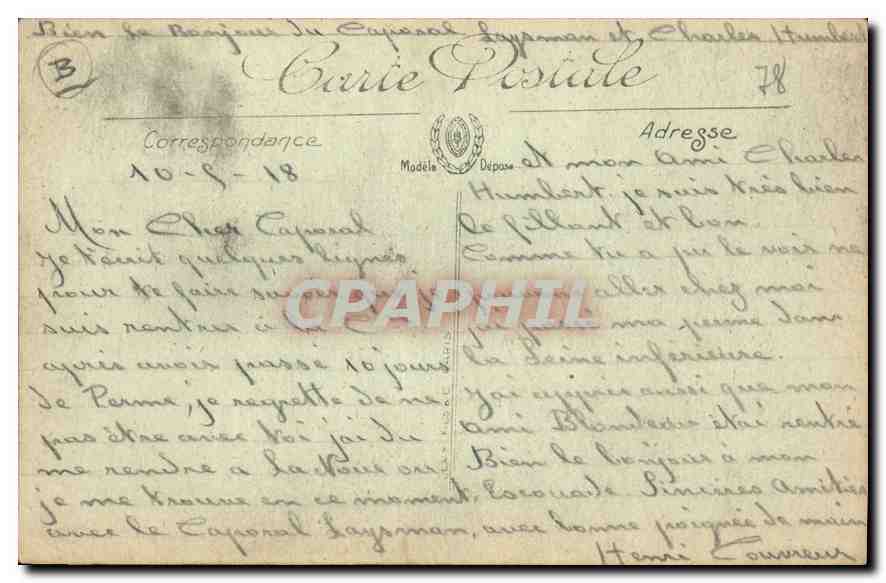 Bien le Bonjour du Caporal Laysman et Charles Humbert
B
Carte Postale
78
Correspondance
Adresse
Modèle Déposé
10-5-18
Mon Cher Caporal
Je t'écrit quelques lignes
pour te faire savoir que je
suis rentrer à
après avoir passé 10 jours
de Perme, je regrette de ne
pas être avec toi j'ai du
me rendre a la Noue ou
je me trouve en ce moment
avec le Caporal Laysman,
et mon ami Charles
Humbert. je suis très bien
le fillant et bon.
Comme tu a pu le voir ne
pouvant aller chez moi
j'ai passé ma perme dans
la Seine inférieure.
J'ai appris aussi que mon
ami était rentré
Bien le bonjour a mon
Escouade. Sincères Amitiés
avec bonne poignée de main
Henri Couvreur
CPAPHIL
PARIS